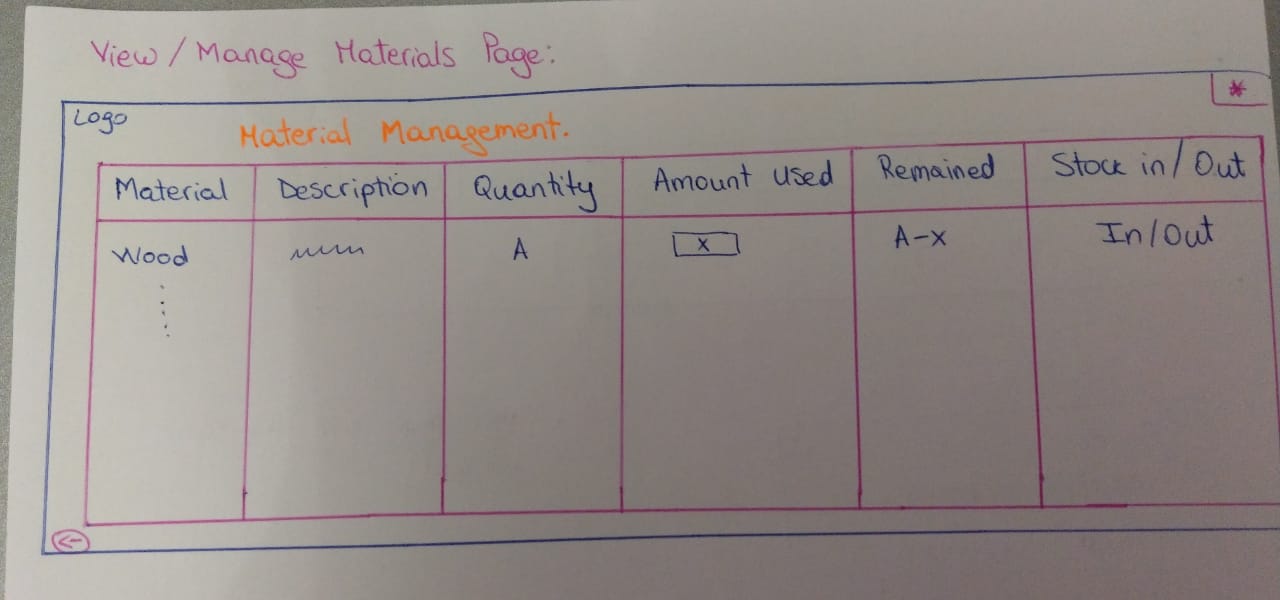 View / Manage Materials Page:
*
Logo
Material Management.
Material Description Quantity Amount Used Remained Stock in / Out
Wood A x A-x In/Out
←